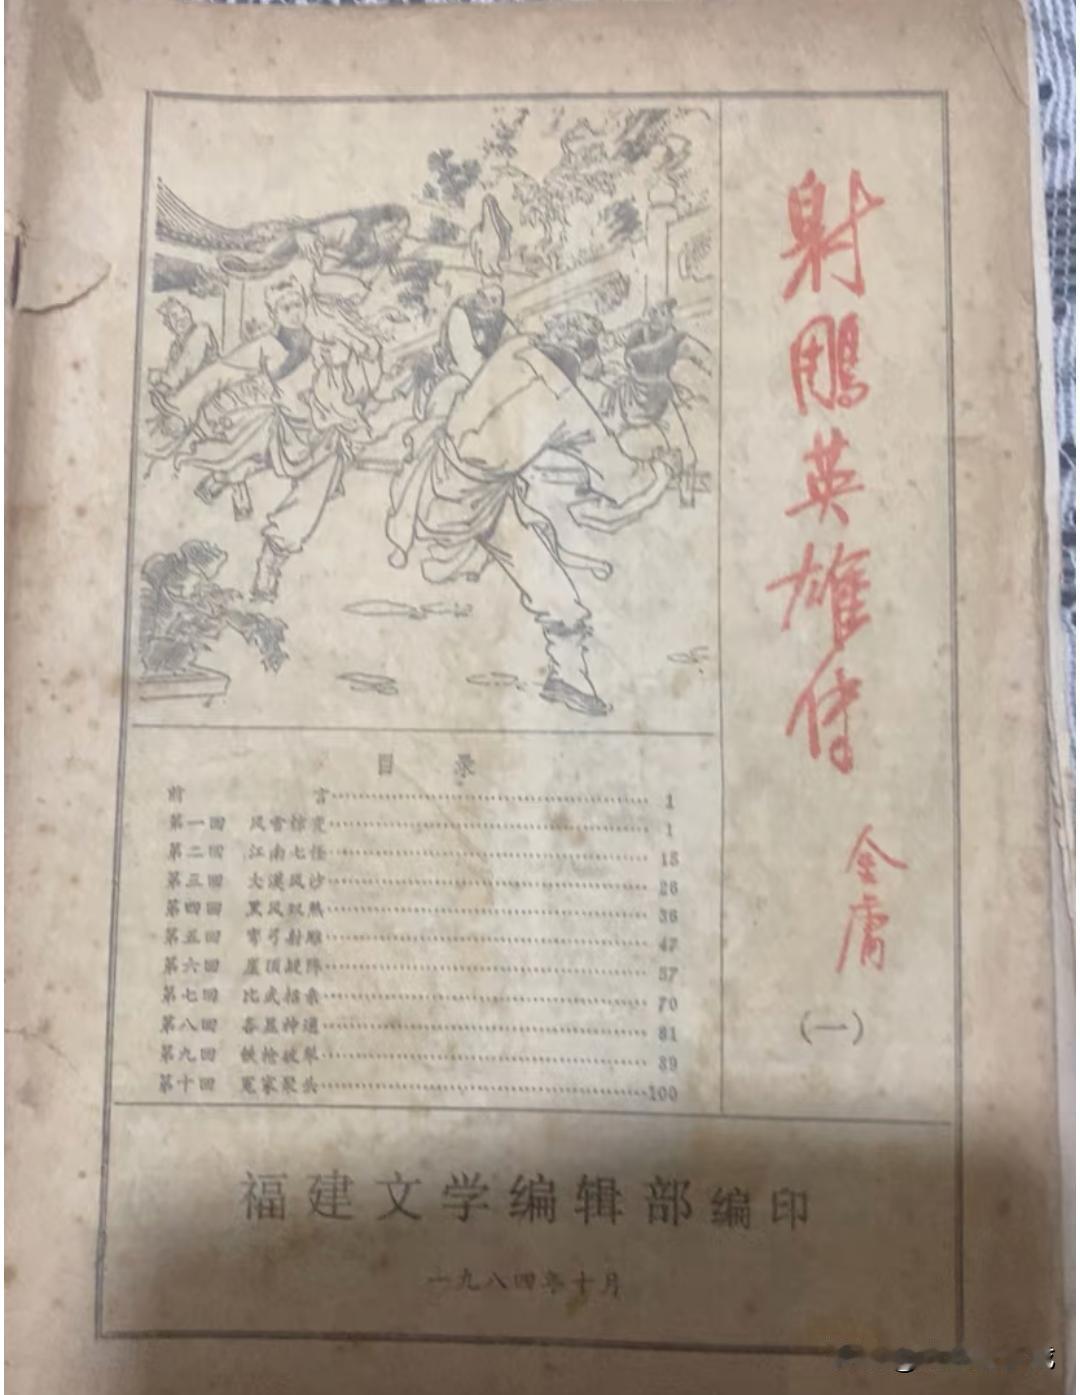 射鵰英雄传
金庸
(一)
目 录
前 言 1
第一回 风雪惊变 1
第二回 江南七怪 15
第三回 大漠风沙 26
第四回 黑风双煞 36
第五回 弯弓射雕 47
第六回 崖顶疑阵 57
第七回 比武招亲 70
第八回 各显神通 81
第九回 铁枪破犁 89
第十回 冤家聚头 100
福建文学编辑部编印
一九八四年十月